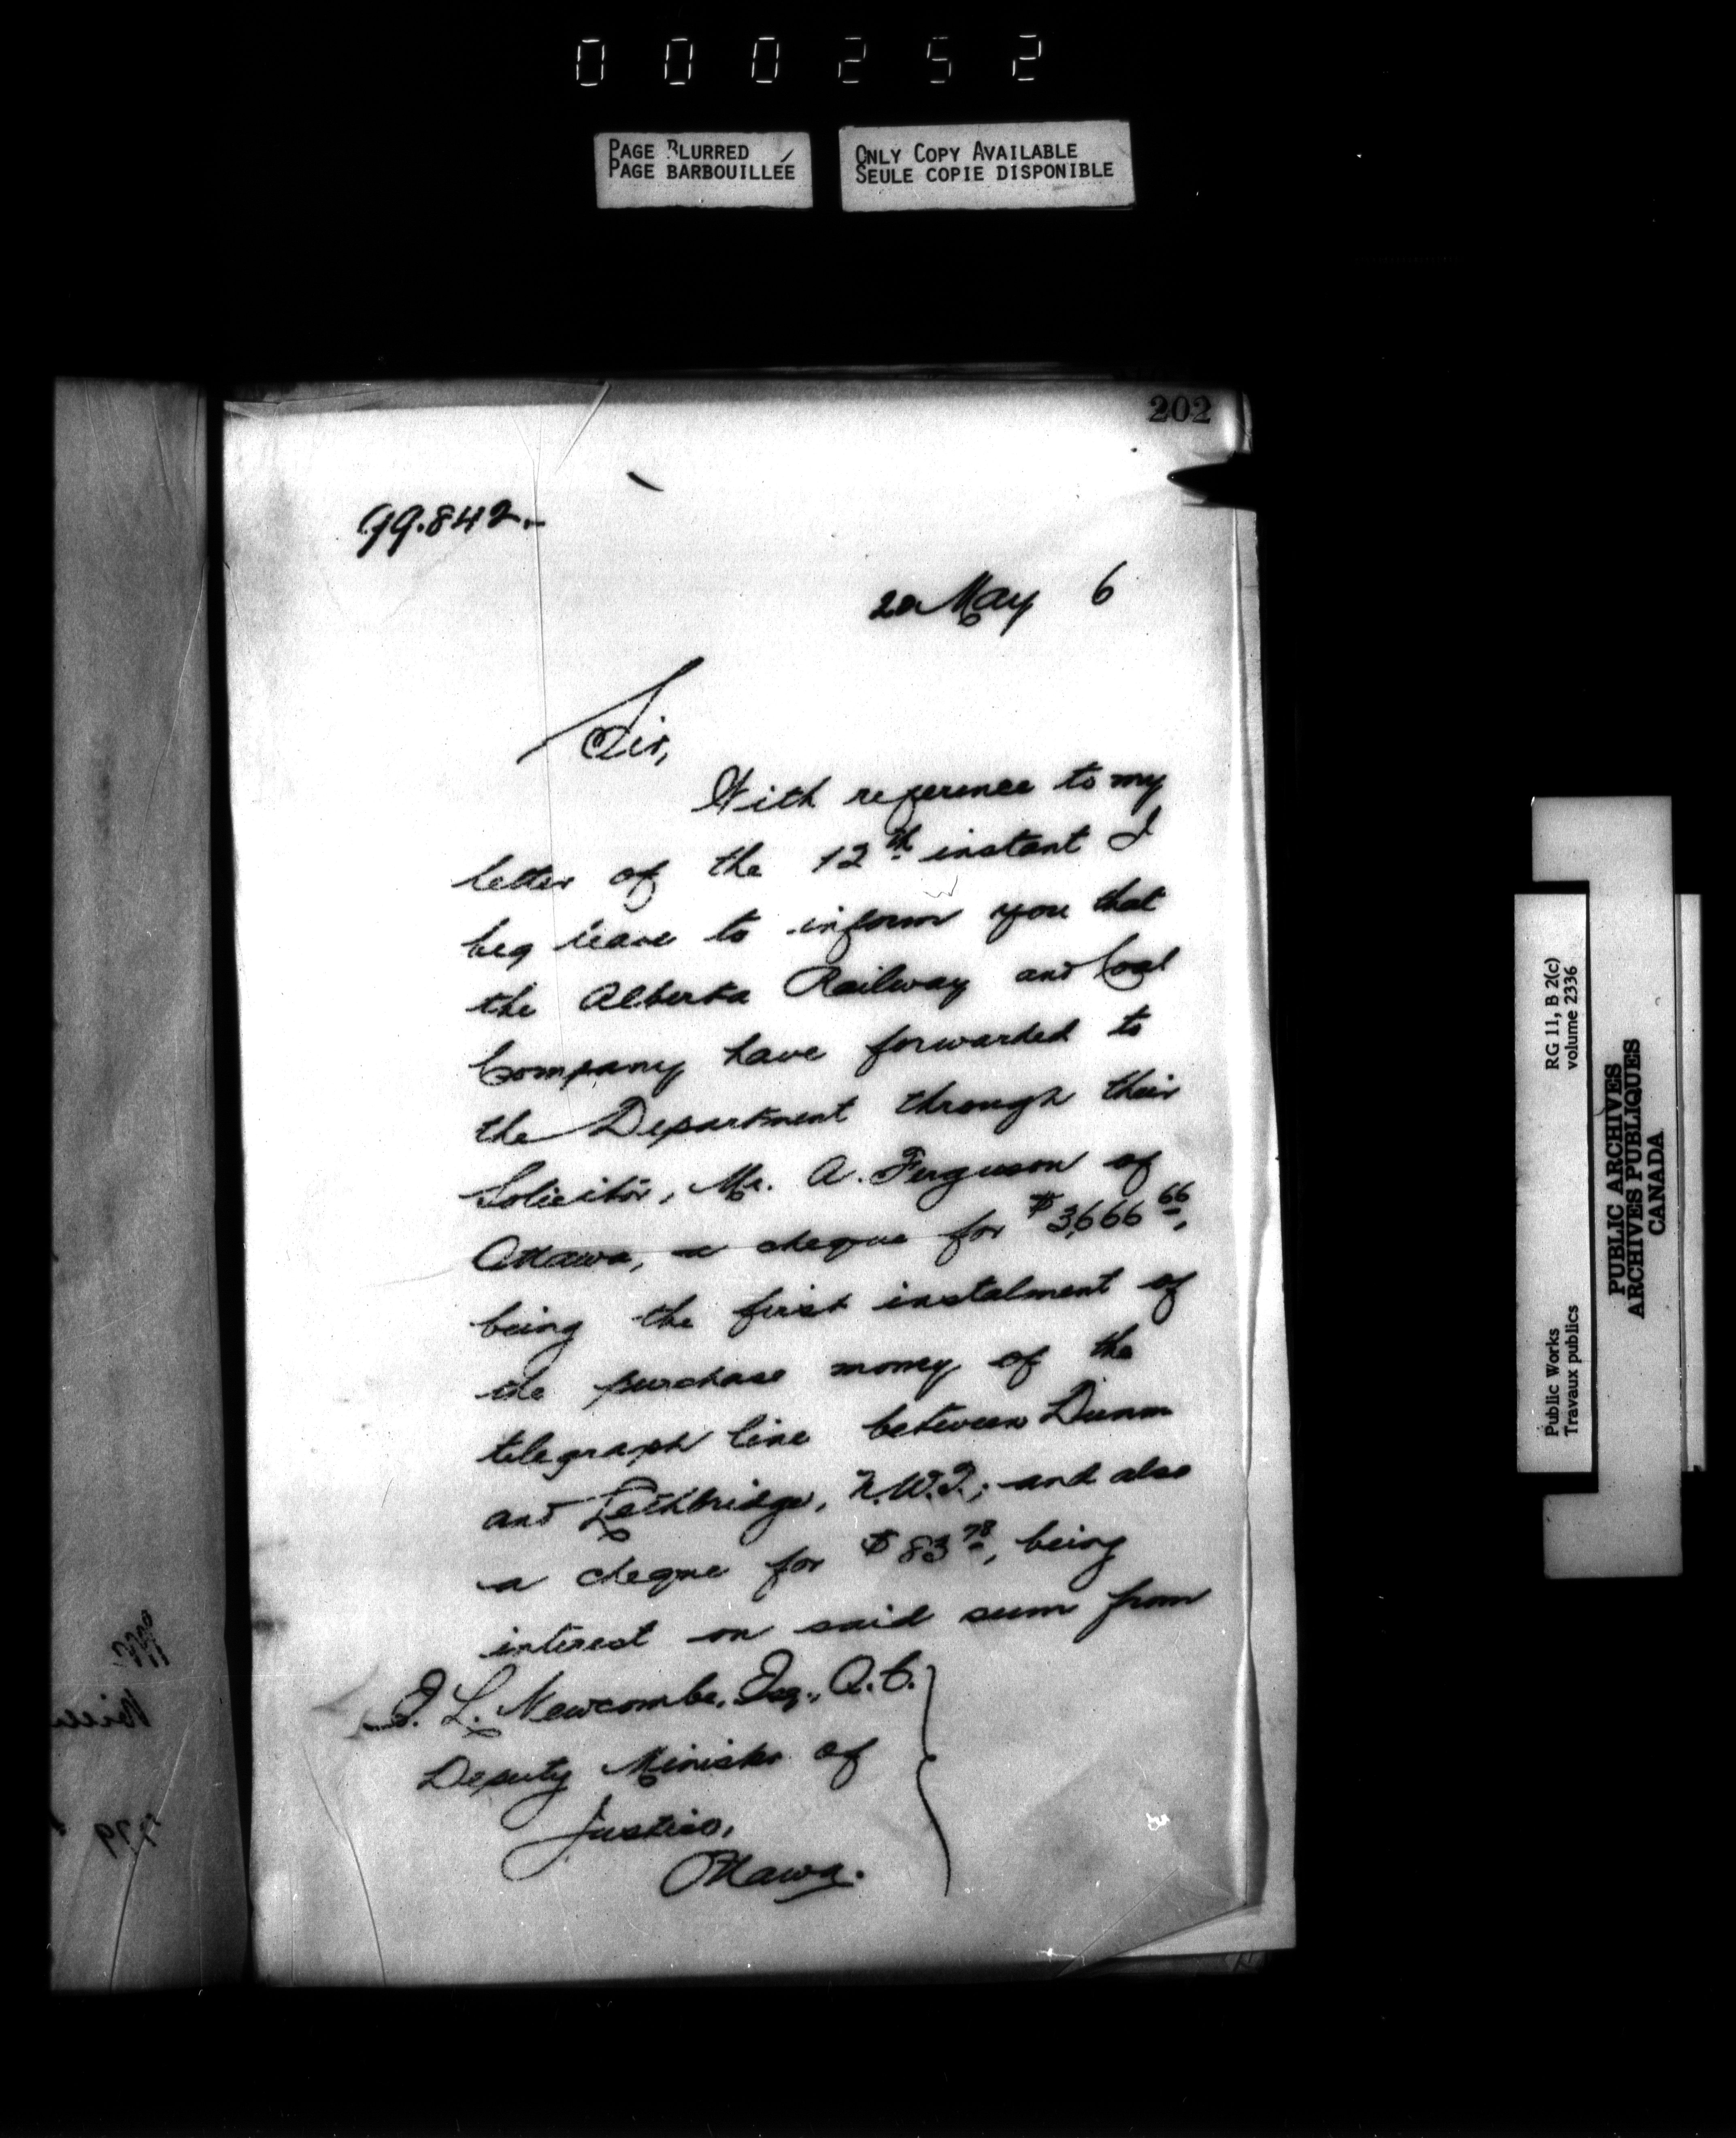 000252
PAGE BLURRED
PAGE BARBOUILLÉE
ONLY COPY AVAILABLE
SEULE COPIE DISPONIBLE
202
99.842.-
20 May 6
Sir,
With reference to my
letter of the 12th instant I
beg leave to inform you that
the Alberta Railway and Coal
Company have forwarded to
the Department through their
Solicitor, Mr. A. Ferguson of
Ottawa, a cheque for $3,666 66,
being the first instalment of
the purchase money of the
telegraph line between Dunm
and Lethbridge, N.W.T.; and also
a cheque for $83 78, being
interest on said sum from
L. Newcombe, Esq., Q.C.
Deputy Minister of
Justice,
Ottawa.
Public Works
Travaux publics
RG 11, B 2(c)
volume 2336
PUBLIC ARCHIVES
ARCHIVES PUBLIQUES
CANADA